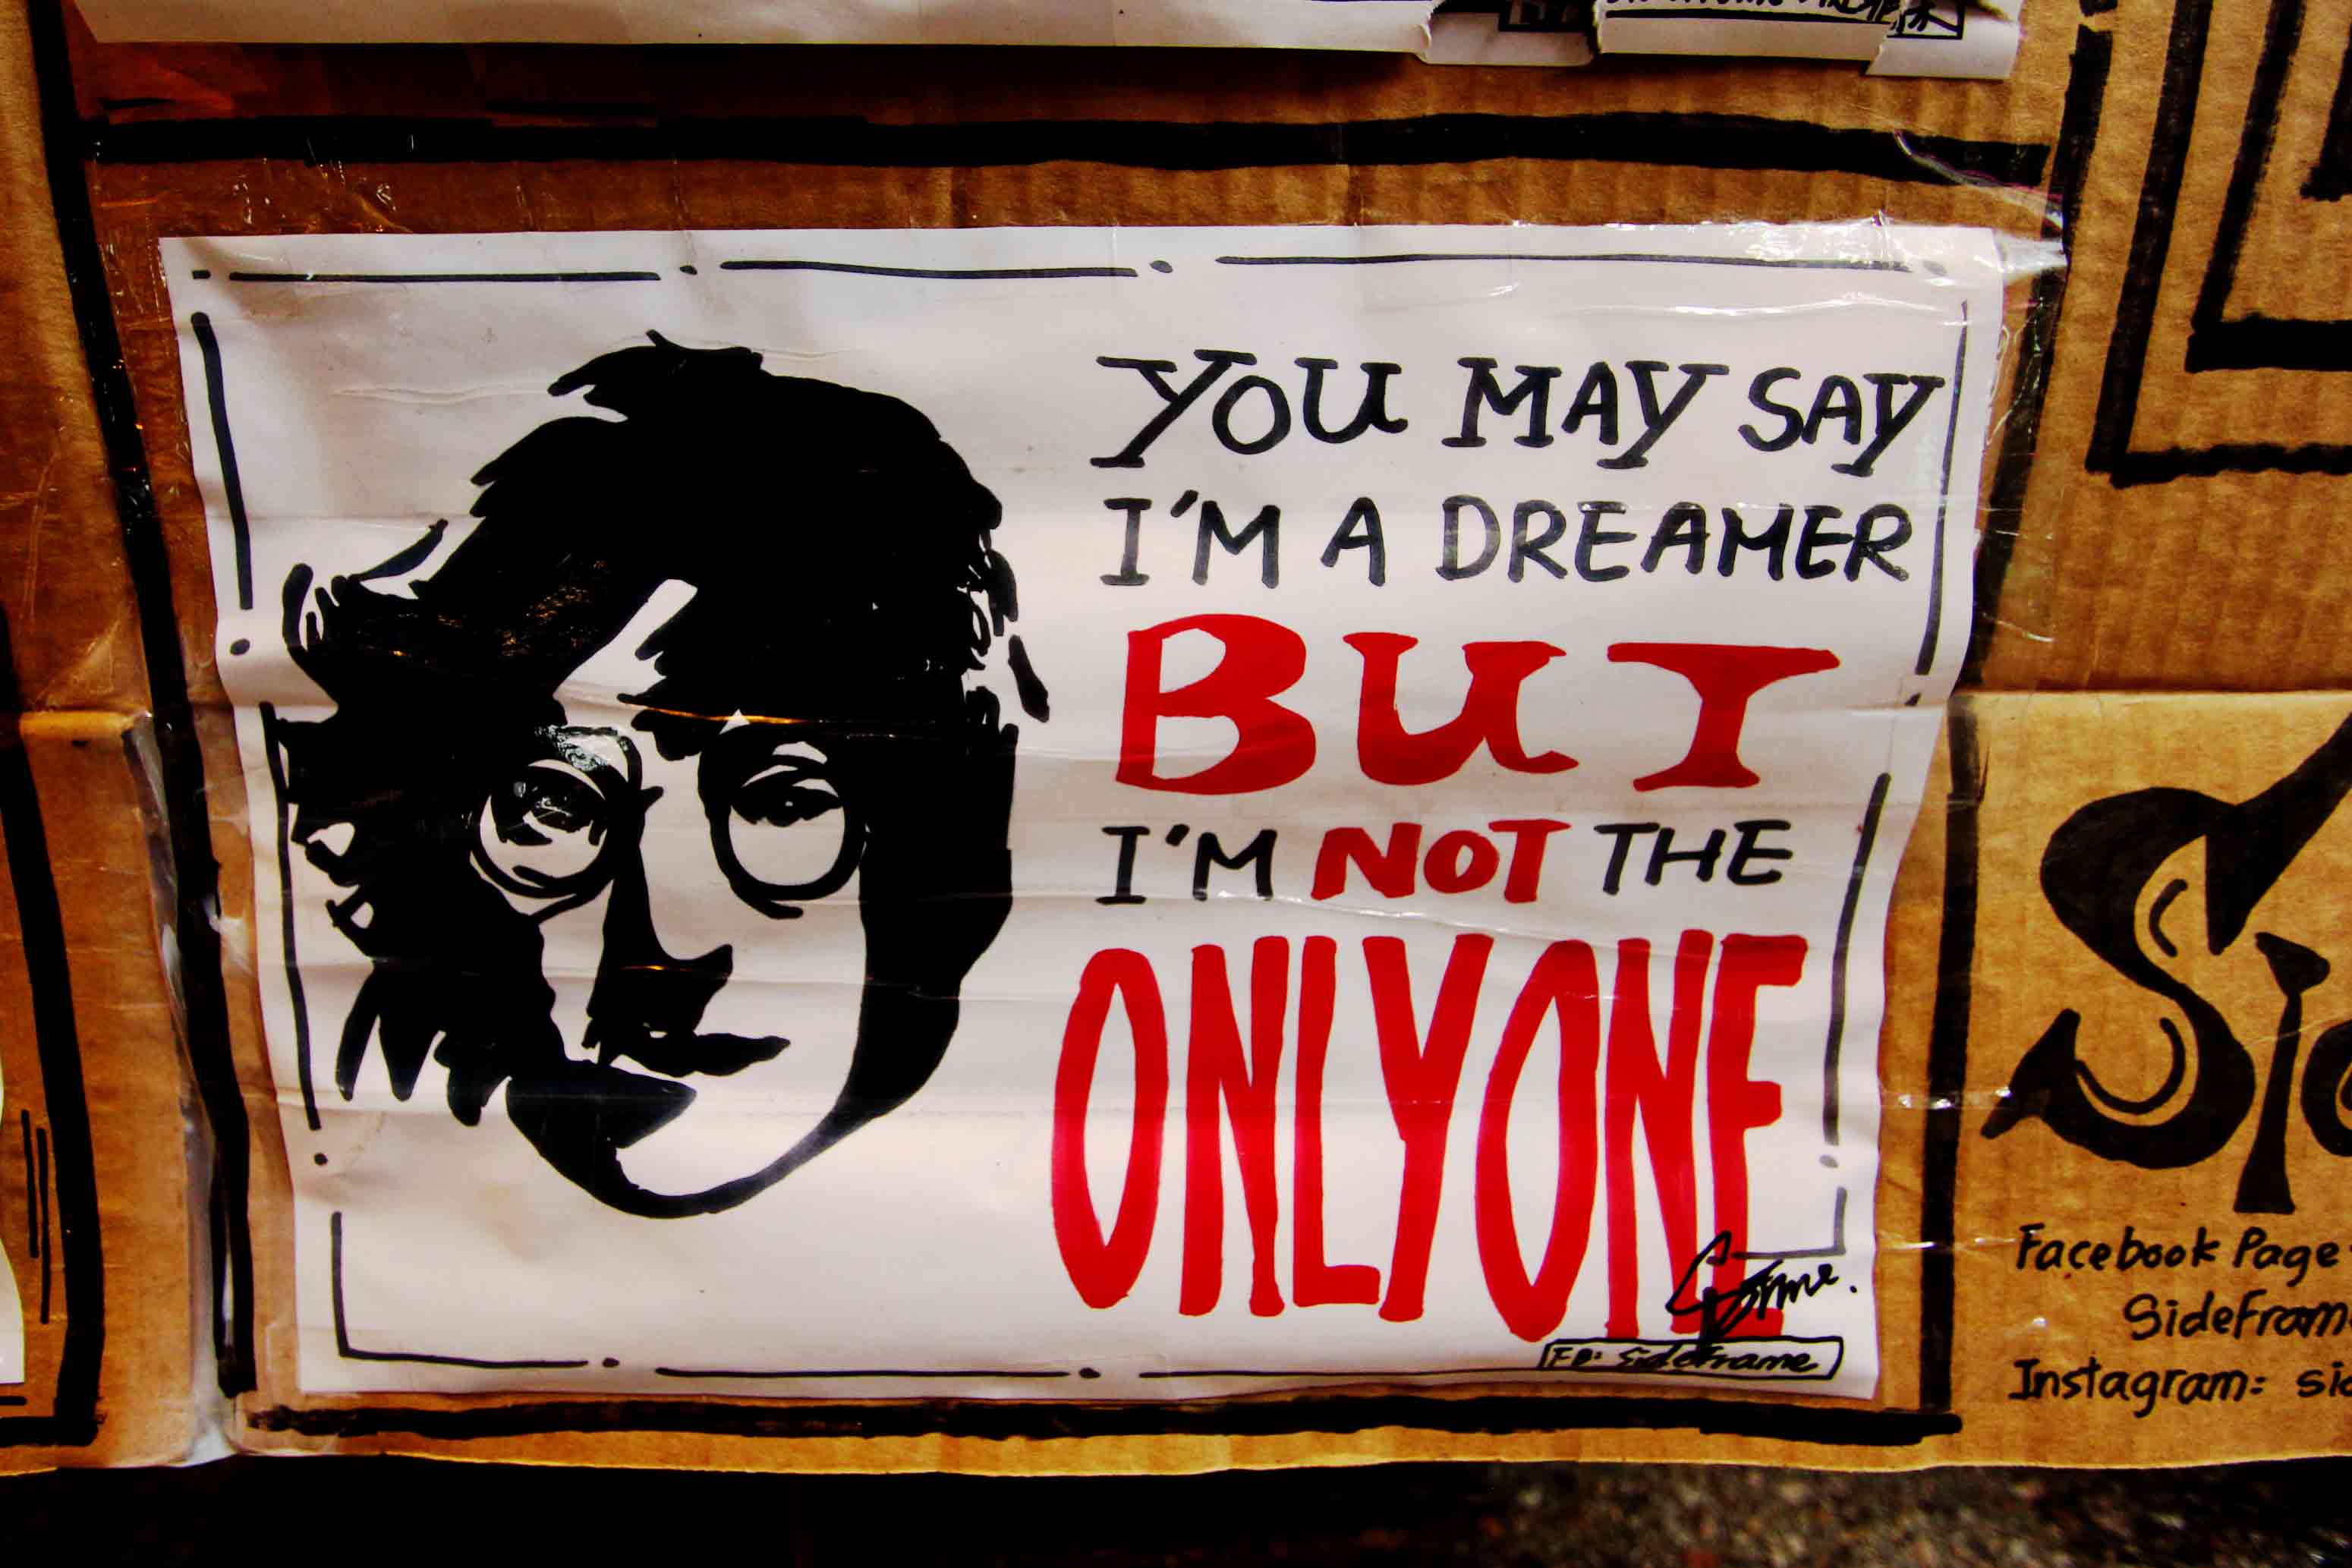 YOU MAY SAY
I'M A DREAMER
BUT
I'M NOT THE
ONLY ONE
FB: SideFrame
Facebook Page
SideFram
Instagram: sid